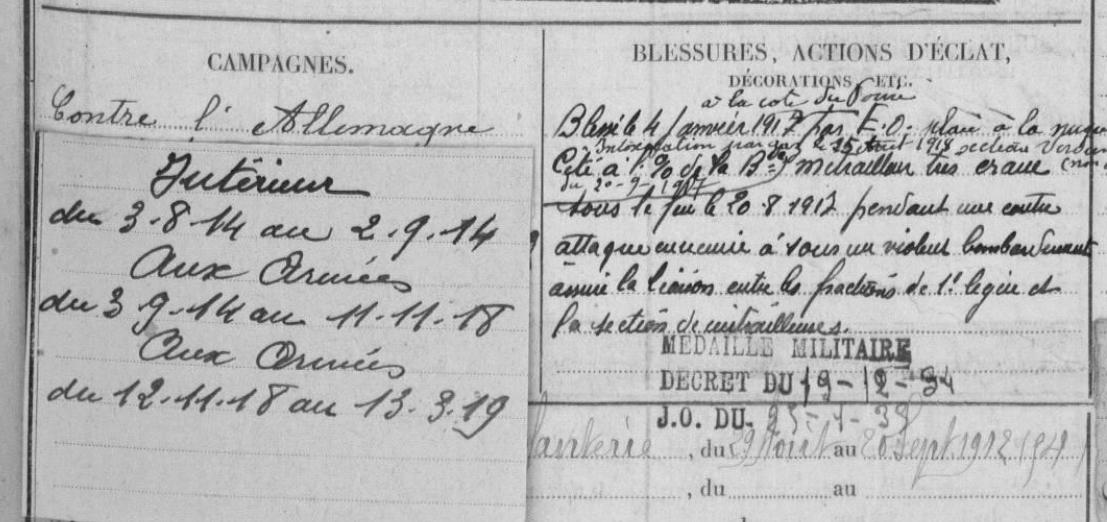 CAMPAGNES.
Contre l'Allemagne
Intérieur
du 3.8.14 au 2.9.14
Aux Armées
du 3 9.14 au 11.11.18
Aux Armées
du 12.11.18 au 13.3.19
BLESSURES, ACTIONS D'ÉCLAT,
DÉCORATIONS, ETC.
à la cote du Poivre
Blessé le 4 Janvier 1917 par E.O. plaie à la nuque
Intoxication par gaz le 25 Août 1918 secteur Verdun
Cité à l'O/ de la Bde mitrailleur très brave
du 20-9-1917
sous le feu le 20-8-1917 pendant une contre
attaque ennemie à sous un violent bombardement
assuré la liaison entre les fractions de 1e ligne et
la section de mitrailleuses.
MEDAILLE MILITAIRE
DECRET DU 19-12-34
J.O. DU
anterie, du 29 Août au 20 Sept. 1912
, du au